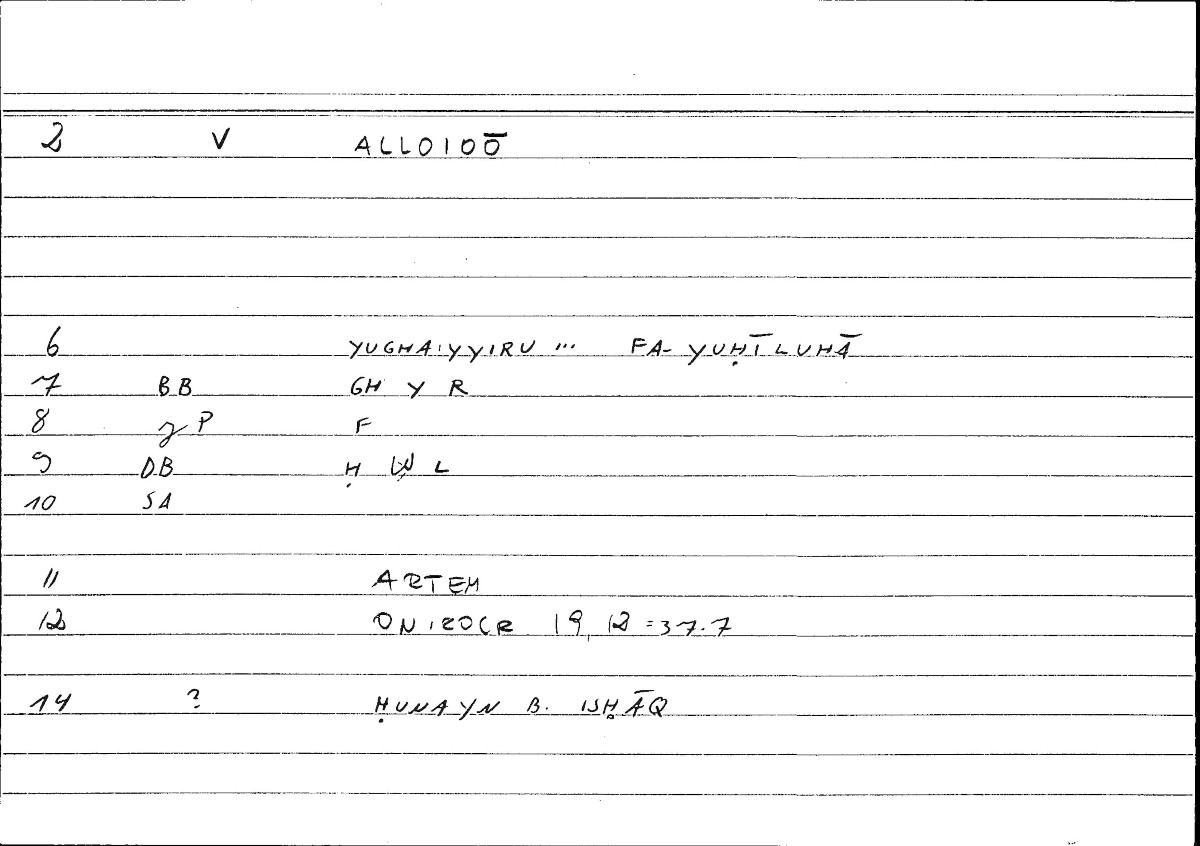 2 V ALLOIOŌ
6 YUGHAIYYIRU ... FA- YUḤĪLUHĀ
7 BB GH Y R
8 P F
9 DB Ḥ W L
10 SA
11 ARTEM
12 ONIROCR 19, 12 = 37.7
14 ? ḤUNAYN B. ISḤĀQ